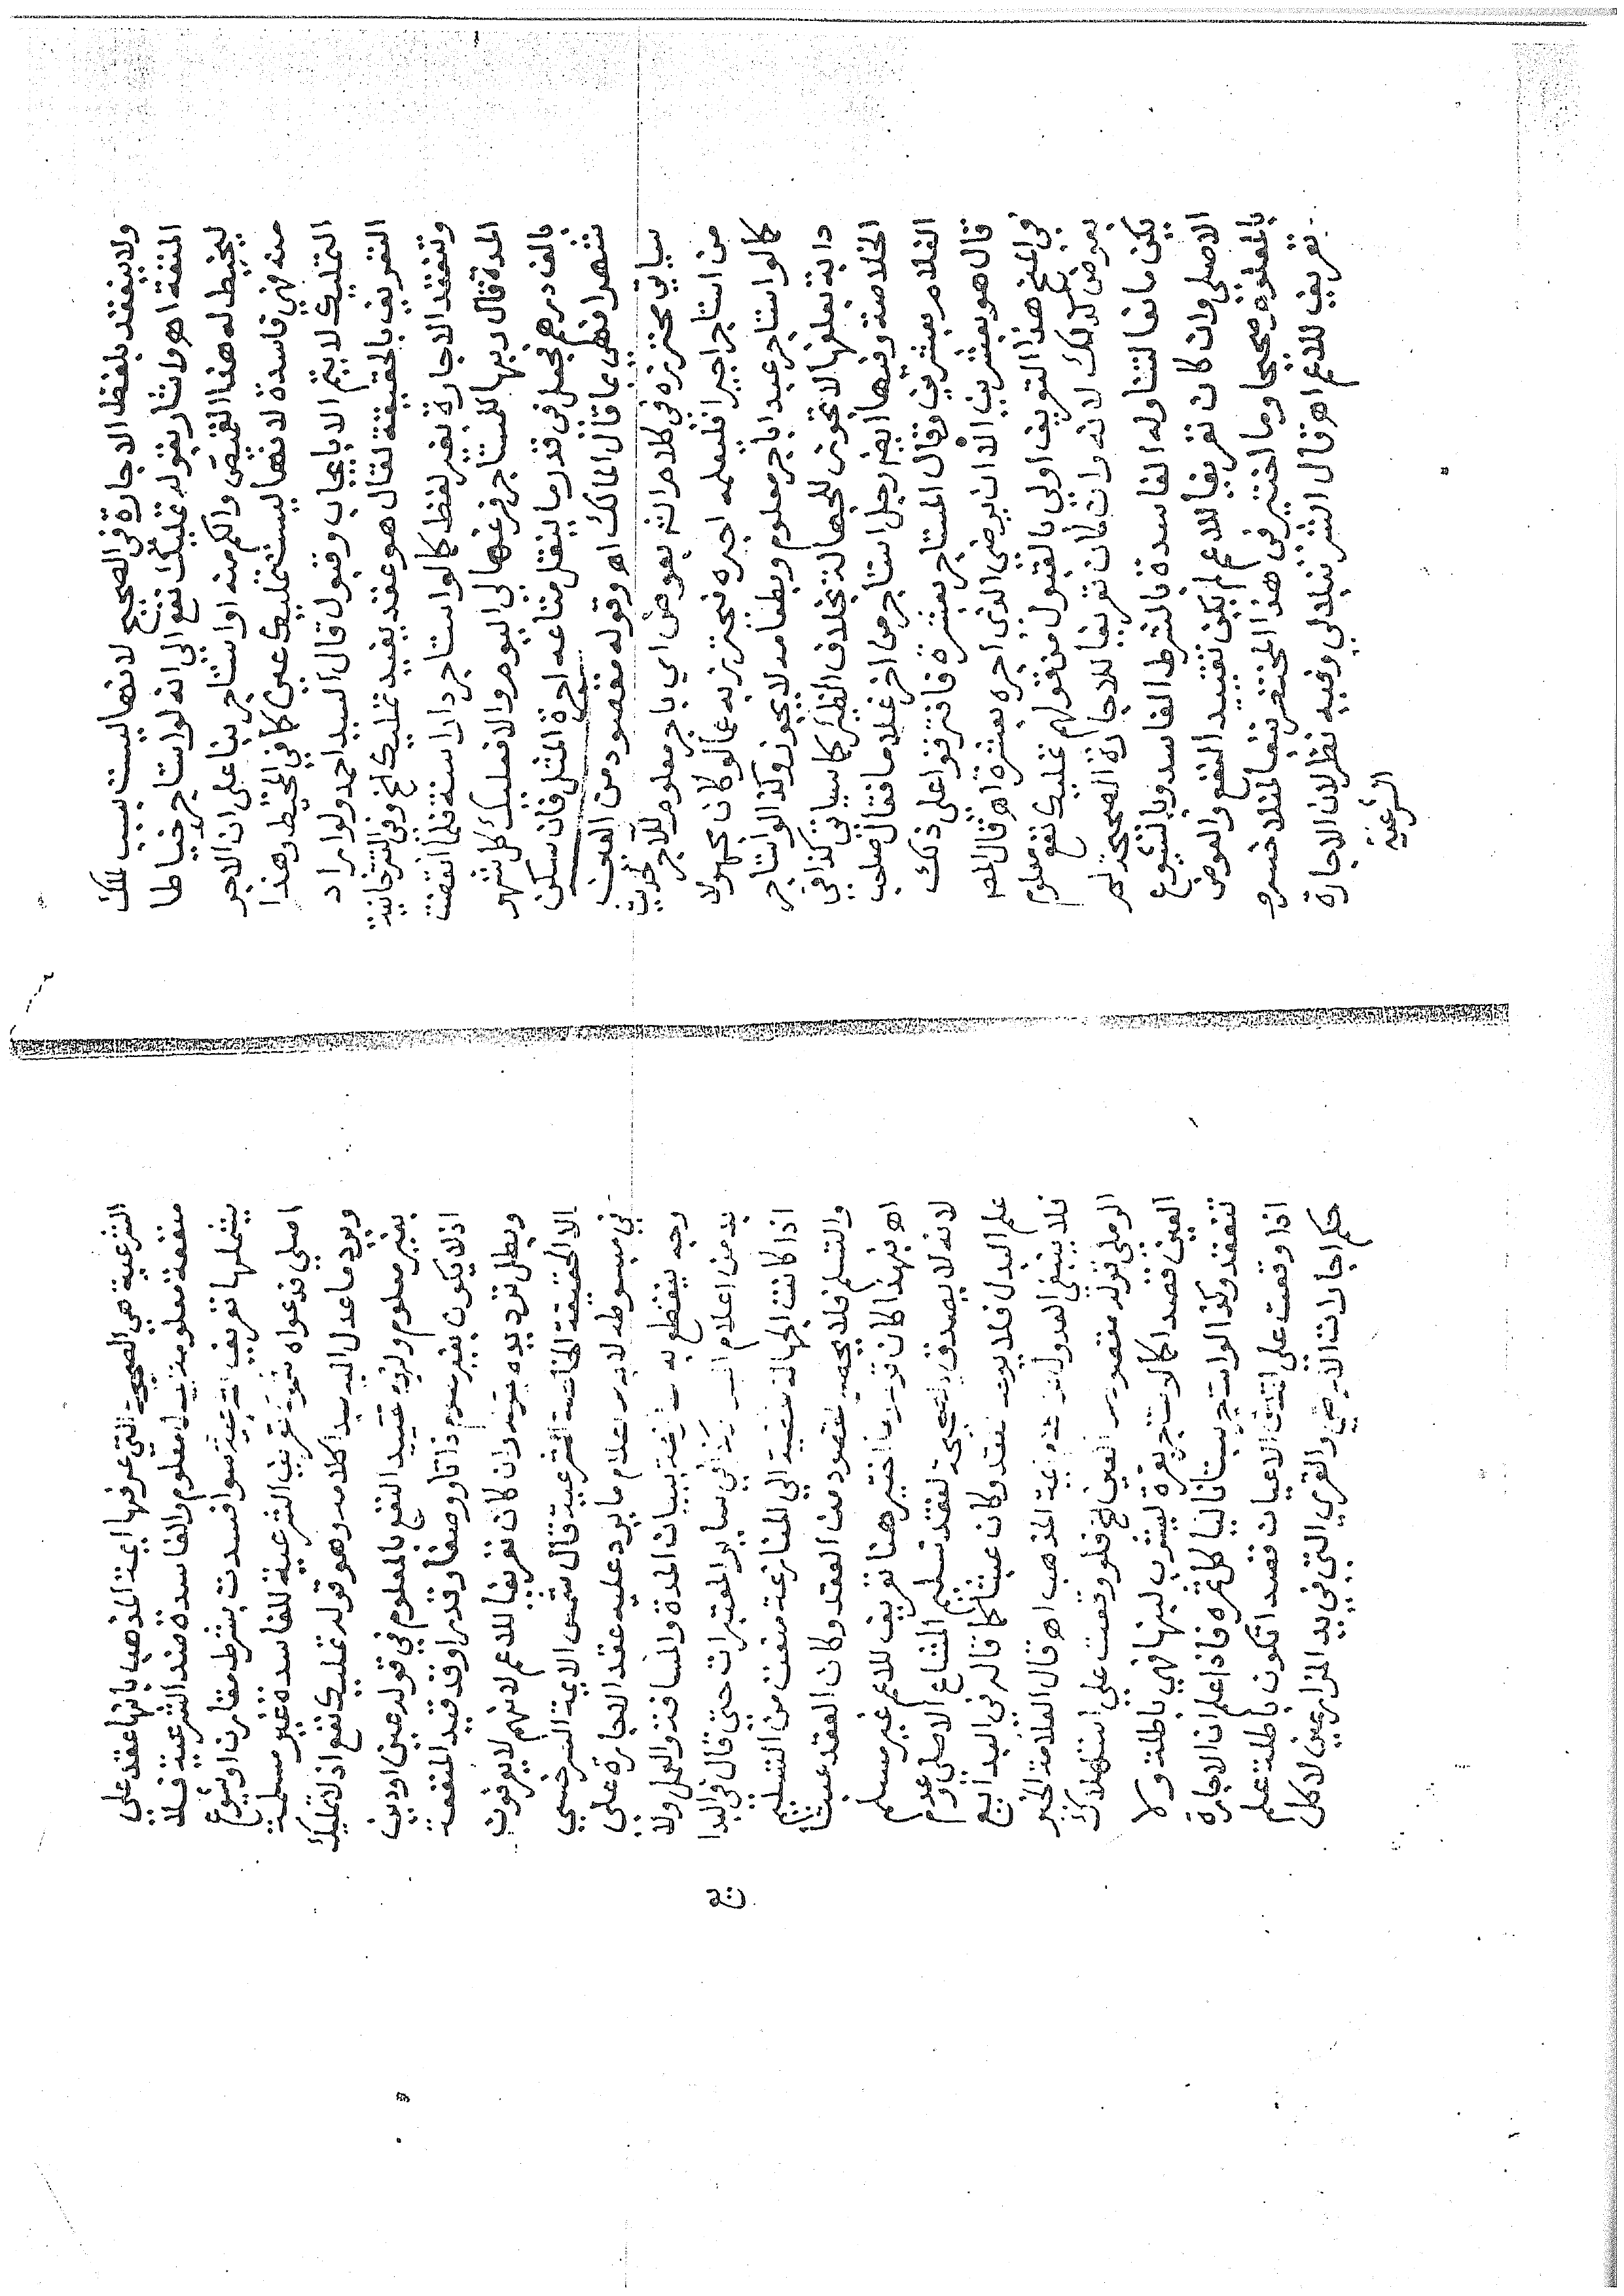 ولا ينعقد بلفظ الاجارة في الصحيح لانها ليست بسبب لملك
المتعة اه واشار بقوله تمليك نفع الى انه لو استاجر خياطا
ليخيط له هذا القميص والكم منه او استاجر بناء على ان الاجر
منه فهي فاسدة لانها ليست تمليك عين كما في المحيط وهذا
التمليك لا يتم الا بايجاب وقبول قال السيد احمد ولو اراد
التعريف بالحقيقة لقال هو عقد يفيد تمليك الخ وفي التترخانية
وتنعقد الاجارة بغير لفظ كما لو استاجر دارا سنة فلما انقضت
المدة قال ربها للمستاجر فرغها لي اليوم والا فعليك كل شهر
بالف درهم فجعل في قدر ما ينقل متاعه اجرة المثل فان سكن
شهرا فهي بما قال المالك اه وقوله مقصود من العين
سياتي محترزه في كلام الشـ بعوض اي باجر معلوم للاجر
من استاجر اجيرا فليعلمه اجره نحترز به عما لو كان مجهولا
كما لو استاجر عبدا باجر معلوم وبطعامه لا يجوز وكذا لو استاجر
دابة بعلفها لا تجوز للجهالة بخلاف الظئر كما سياتي كذا في
الخلاصة وفيها ايضا رجل استاجر من اخر غلاما فقال صاحب
الغلام بعشرين وقال المستاجر بعشرة فافترقوا على ذلك
قال هو بعشرين الا ان يرضى الذي اجره بعشرة اه قال المصـ
في المنح هذا التعريف اولى بالقبول من قولهم تمليك نفع معلوم
بعوض كذلك لانه وان كان تعريفا للاجارة الصحيحة لم
يكن مانعا لتناوله الفاسدة بالشرط الفاسد وبالشيوع
الاصلي وان كان تعريفا للاعم لم يكن تقييد النفع والعوض
بالمعلومية صحيحا وما اختير في هذا المختصر تبعا لمنلا خسرو
تعريف للاعم اه قال الشرنبلالي وفيه نظر لان الاجارة
الشرعية
الشرعية هي الصحيحة التي عرفها ايمة المذهب بانها عقد على
منفعة معلومة ببدل معلوم والفاسدة ضد الشرعية فلا
يشملها تعريف الشرعية سواء فسدت بشرط مقارن او شيوع
اصلي فدعواه شمول تعريف الشرعية للفاسدة غير مسلمة
ويرد ما عدل اليه بدا كلامه وهو قوله تمليك نفع اذ لا تمليك
بغير معلوم ولزمه تقييد النفع بالمعلوم في قوله عين او دين
اذ لا يكون بغير معلوم ذاتا ووصفا وقدرا وقد قيد المنفعة
وبطل ترديده بقوله وان كان تعريفا للاعم لانهم لا يعرفون
الا الحقيقة الخالصة الشرعية قال شمس الايمة السرخسي
في مبسوطه لا بد من اعلام ما يرد عليه عقد الاجارة على
وجه ينقطع به المنازعة ببيان المدة والمسافة والعمل ولا
بد من اعلام البدل كذا في ساير المعتبرات حتى قال في البدا
يع
اذا كانت الجهالة مفضية الى المنازعة منعت من التسليم
والتسلم فلا يحصل المقصود من العقد وكان العقد عبثا
اه بهذا كان قوله وما اختير هنا تعريف للاعم غير مسلم
لانه لا يصدق بالصحيحة لفقد تسليم المشاع الاصلي وعدم
علم البدل فلا يوجد نعقد وكان عبثا كما قاله في البدايع
فلا ينبغي العدول عن كلام ايمة المذهب اه قال العلامة الخير
الرملي قوله مقصود من العين الخ فلو وقعت على استهلاك
العين قصدا كما لو استاجر بقرة ليشرب لبنها فهي باطلة ولا
تنعقد وكذا لو استاجر بستانا لياكل ثمره فاذا علم ان الاجارة
اذا وقعت على اتلاف الاعيان قصدا تكون باطلة علم
حكم اجارات الاراضي والقرى التي في يد المزارعين لاكل